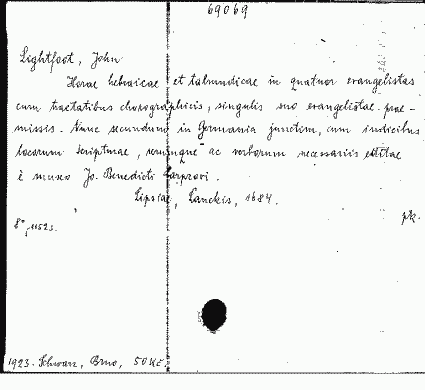 69069
Lightfoot, John
Horae hebraicae et talmudicae in quatuor evangelistas
cum tractatibus chorographicis, singulis suo evangelistae prae-
missis. Nunc secundum in Germania junctim, cum indicibus
locorum scripturae, rerumque ac verborum necessariis editae
è museo Jo. Benedicti Carpzovi.
Lipsiae, Lanckis, 1684.
pk.
8°, 11523.
1923. Schwarz, Brno, 50 Kč.